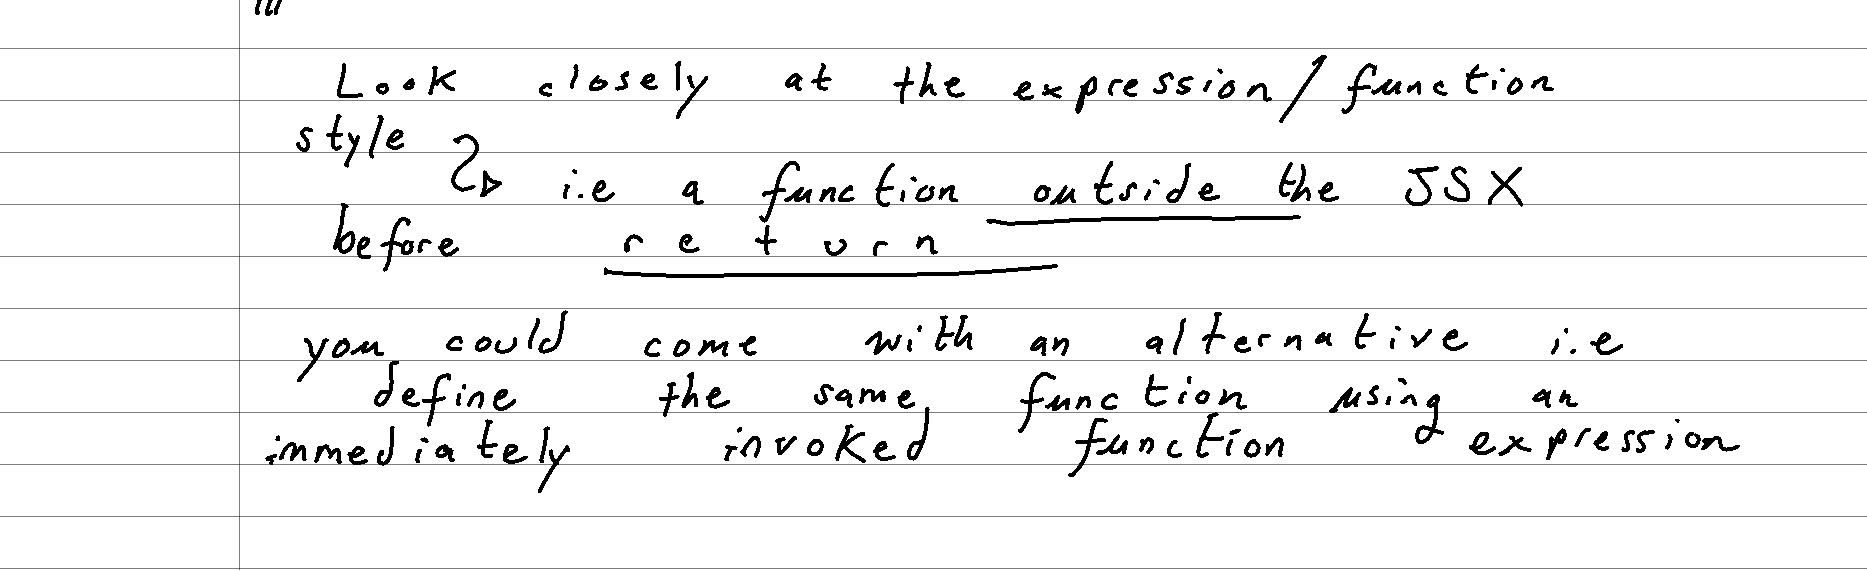 Look closely at the expression/function
style
i.e a function outside the JSX
before return
you could come with an alternative i.e
define the same function using an
immediately invoked function expression